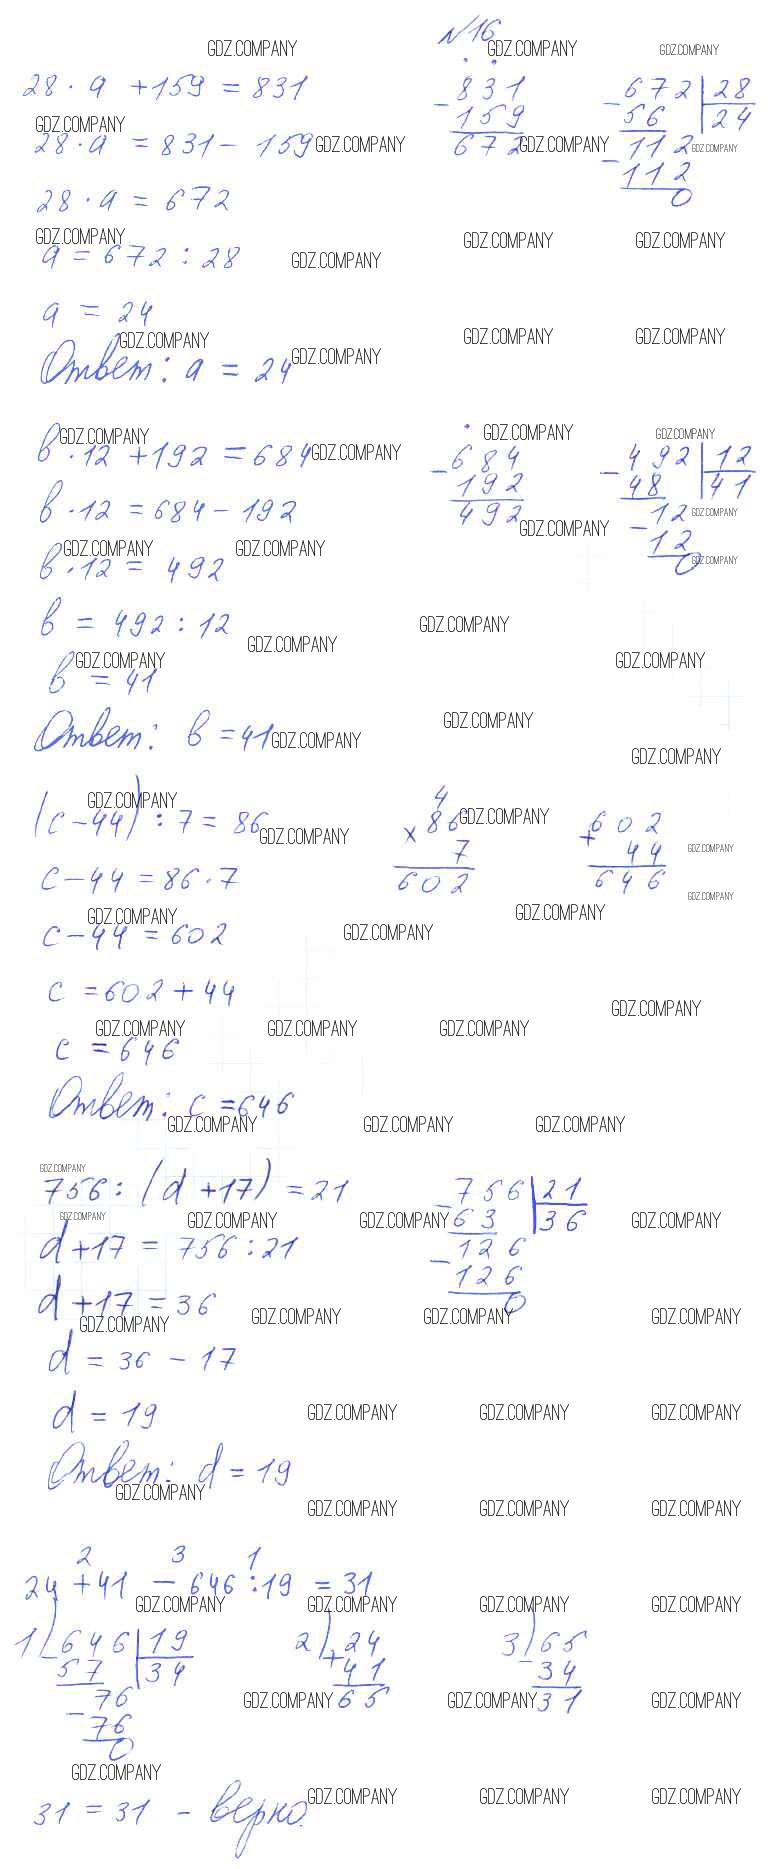 №16
28 · a + 159 = 831
28 · a = 831 - 159
28 · a = 672
a = 672 : 28
a = 24
Ответ: a = 24
- 831
159
672
- 672 | 28
56 | 24
- 112
112
0
b · 12 + 192 = 684
b · 12 = 684 - 192
b · 12 = 492
b = 492 : 12
b = 41
Ответ: b = 41
- 684
192
492
- 492 | 12
48 | 41
- 12
12
0
(c - 44) : 7 = 86
c - 44 = 86 · 7
c - 44 = 602
c = 602 + 44
c = 646
Ответ: c = 646
4
× 86
7
602
+ 602
44
646
756 : (d + 17) = 21
d + 17 = 756 : 21
d + 17 = 36
d = 36 - 17
d = 19
Ответ: d = 19
- 756 | 21
63 | 36
- 126
126
0
2 3 1
24 + 41 - 646 : 19 = 31
1) - 646 | 19
57 | 34
- 76
76
0
2) + 24
41
65
3) - 65
34
31
31 = 31 - верно.
GDZ.COMPANY